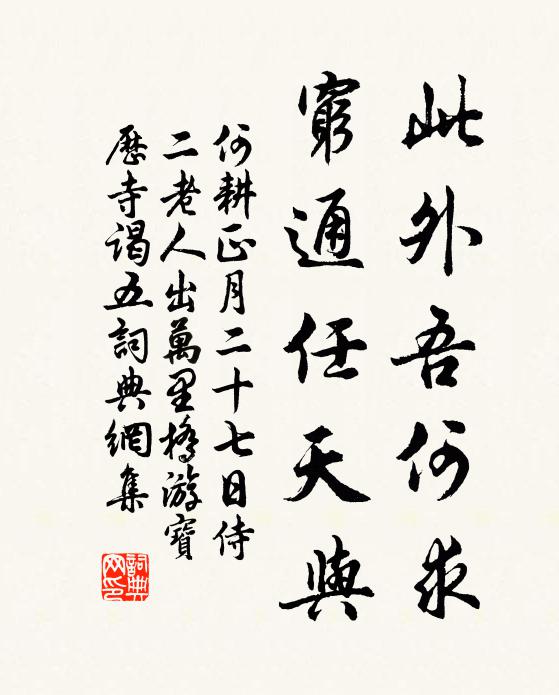 此外吾何求
窮通任天與
何耕正月二十七日侍
二老人出萬里橋游寶
歷寺謁五詞典網集
詞典网印